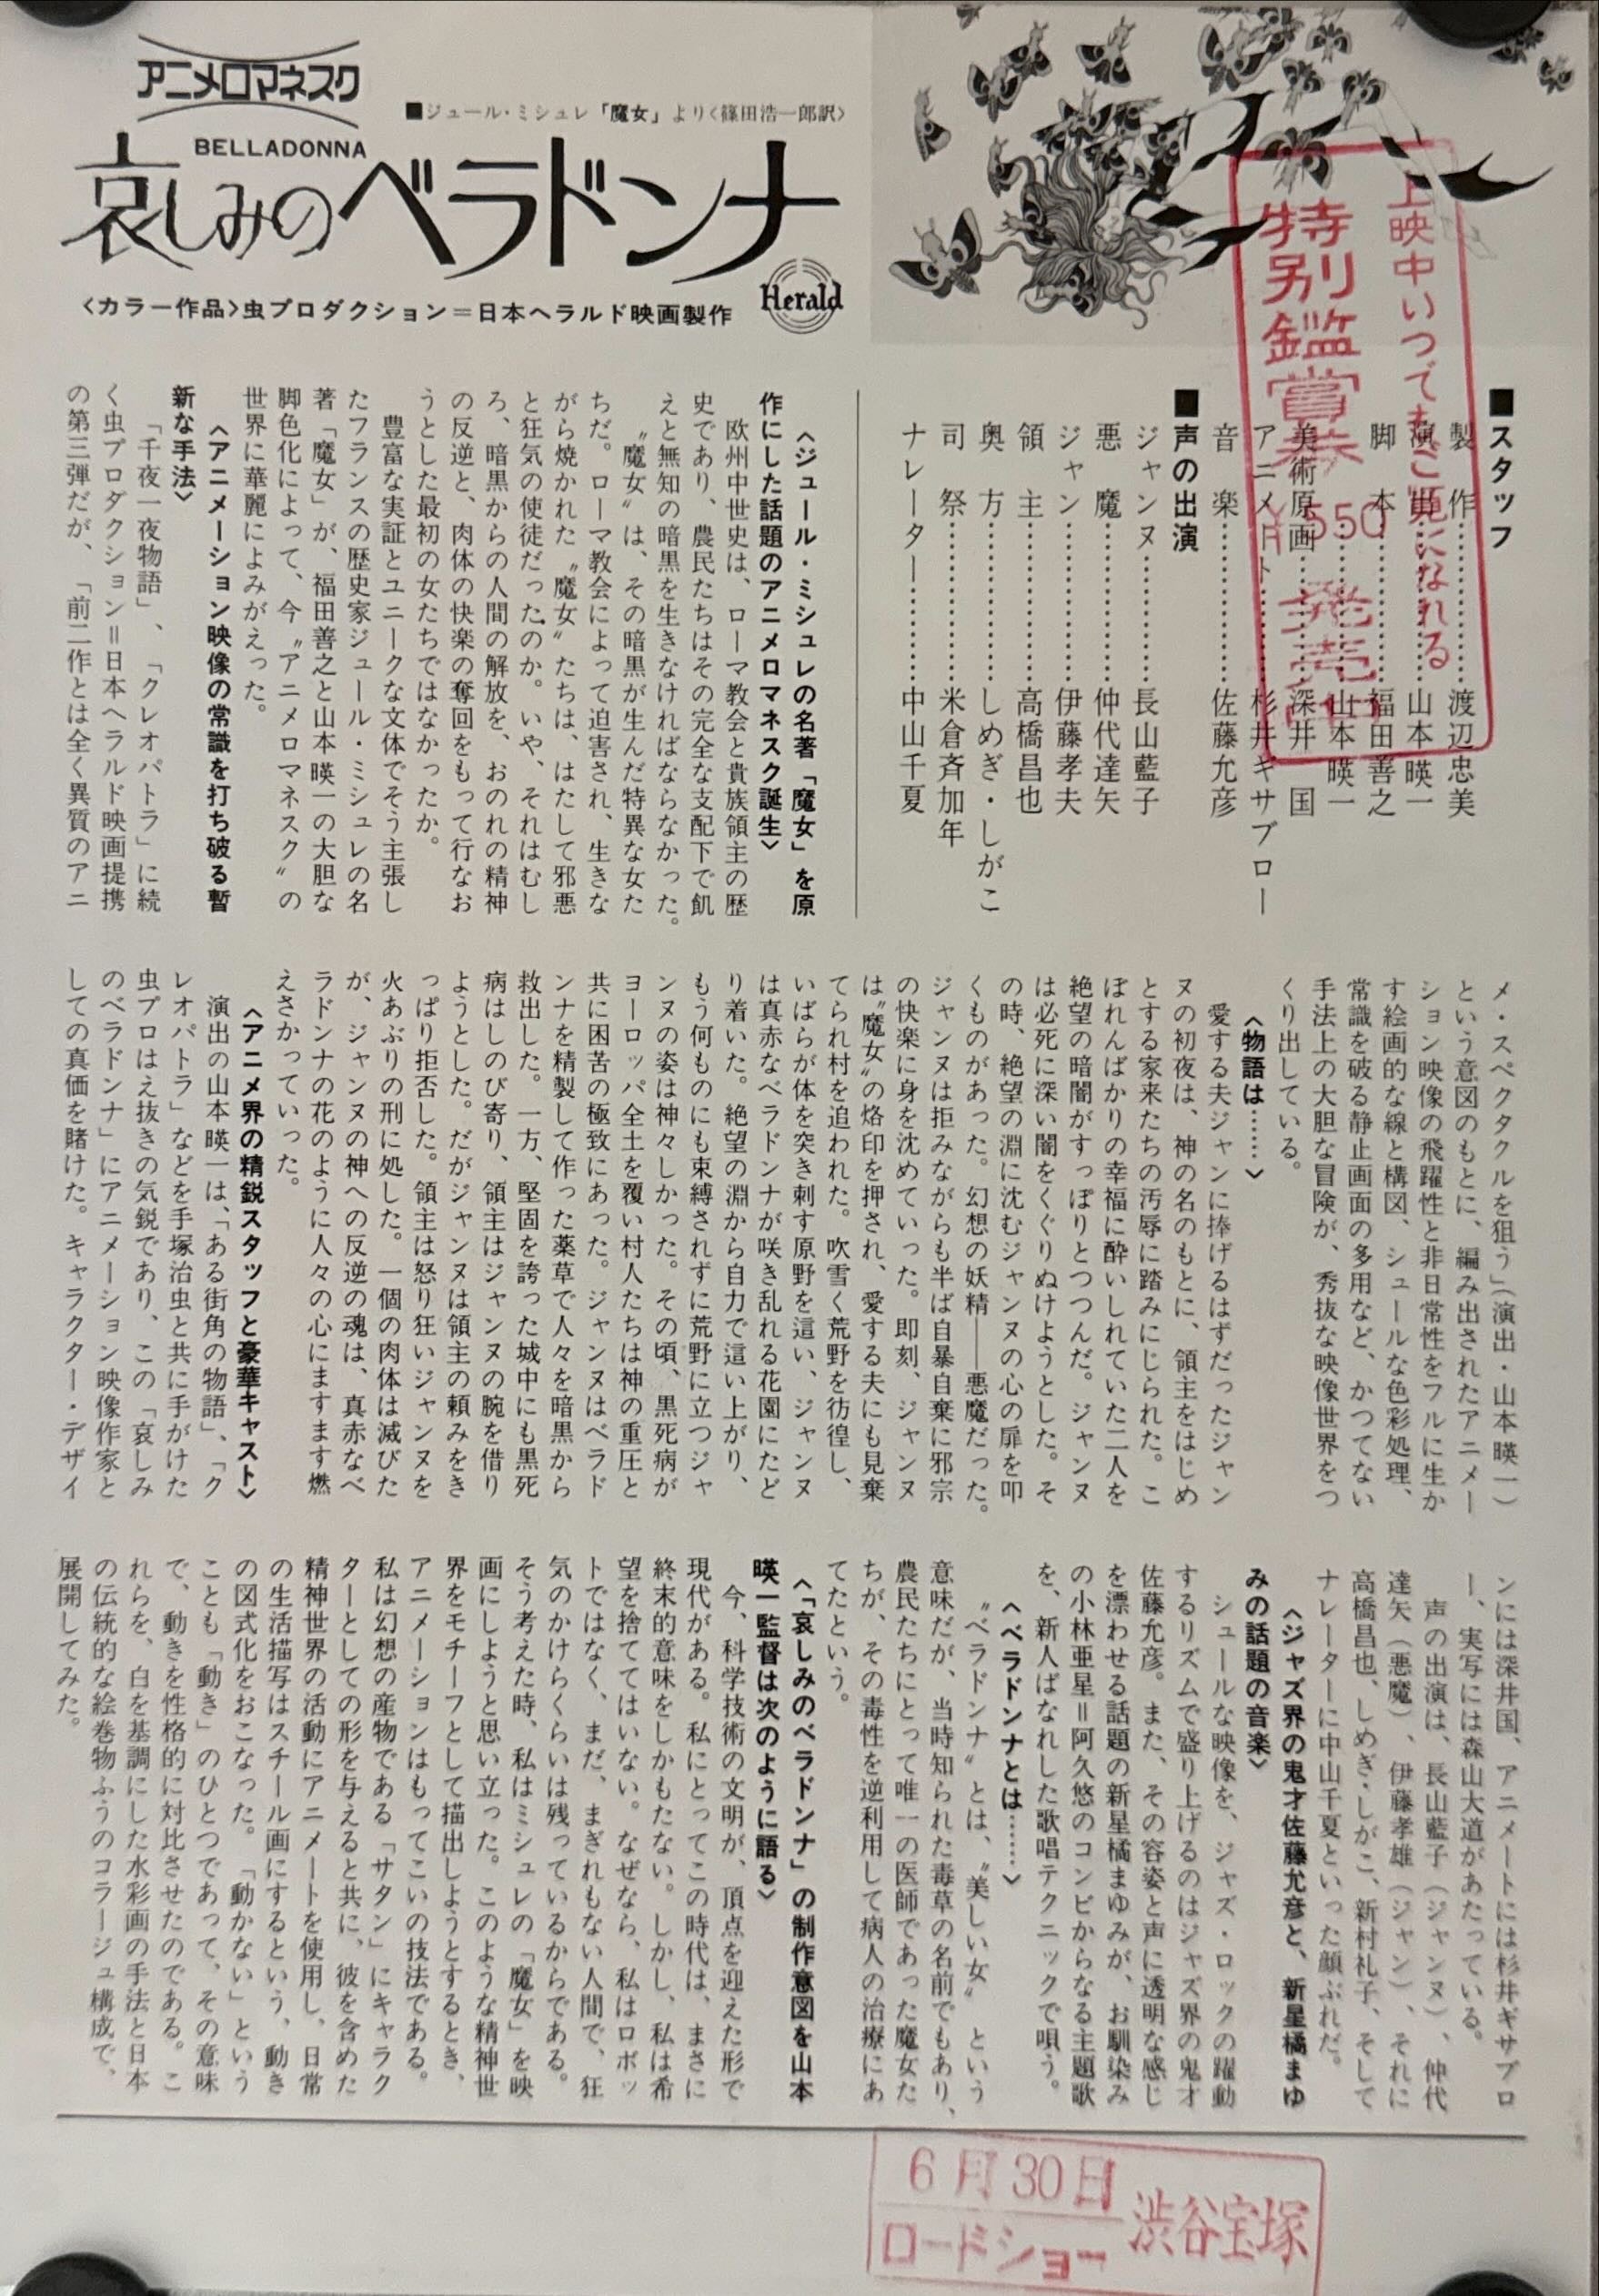 アニメロマネスク
■ジュール・ミシュレ「魔女」より〈篠田浩一郎訳〉
BELLADONNA
哀しみのベラドンナ
〈カラー作品〉虫プロダクション=日本ヘラルド映画製作
Herald
上映中いつでもご覧になれる
特別鑑賞券
¥550 発売中
■スタッフ
製作…………渡辺忠美
演出…………山本暎一
脚本…………福田善之
山本暎一
美術原画…………深井 国
アニメート…………杉井ギサブロー
音楽…………佐藤允彦
■声の出演
ジャンヌ…………長山藍子
悪魔…………仲代達矢
ジャン…………伊藤孝夫
領主…………高橋昌也
奥方…………しめぎ・しがこ
司祭…………米倉斉加年
ナレーター…………中山千夏
〈ジュール・ミシュレの名著「魔女」を原
作にした話題のアニメロマネスク誕生〉
欧州中世史は、ローマ教会と貴族領主の歴
史であり、農民たちはその完全な支配下で飢
えと無知の暗黒を生きなければならなかった。
〝魔女〟は、その暗黒が生んだ特異な女た
ちだ。ローマ教会によって迫害され、生きな
がら焼かれた〝魔女〟たちは、はたして邪悪
と狂気の使徒だったのか。いや、それはむし
ろ、暗黒からの人間の解放を、おのれの精神
の反逆と、肉体の快楽の奪回をもって行なお
うとした最初の女たちではなかったか。
豊富な実証とユニークな文体でそう主張し
たフランスの歴史家ジュール・ミシュレの名
著「魔女」が、福田善之と山本暎一の大胆な
脚色化によって、今〝アニメロマネスク〟の
世界に華麗によみがえった。
〈アニメーション映像の常識を打ち破る暫
新な手法〉
「千夜一夜物語」、「クレオパトラ」に続
く虫プロダクション=日本ヘラルド映画提携
の第三弾だが、「前二作とは全く異質のアニ
メ・スペクタクルを狙う」(演出・山本暎一)
という意図のもとに、編み出されたアニメー
ション映像の飛躍性と非日常性をフルに生か
す絵画的な線と構図、シュールな色彩処理、
常識を破る静止画面の多用など、かつてない
手法上の大胆な冒険が、秀抜な映像世界をつ
くり出している。
〈物語は……〉
愛する夫ジャンに捧げるはずだったジャン
ヌの初夜は、神の名のもとに、領主をはじめ
とする家来たちの汚辱に踏みにじられた。こ
ぼれんばかりの幸福に酔いしれていた二人を
絶望の暗闇がすっぽりとつつんだ。ジャンヌ
は必死に深い闇をくぐりぬけようとした。そ
の時、絶望の淵に沈むジャンヌの心の扉を叩
くものがあった。幻想の妖精――悪魔だった。
ジャンヌは拒みながらも半ば自暴自棄に邪宗
の快楽に身を沈めていった。即刻、ジャンヌ
は〝魔女〟の烙印を押され、愛する夫にも見棄
てられ村を追われた。吹雪く荒野を彷徨し、
いばらが体を突き刺す原野を這い、ジャンヌ
は真赤なベラドンナが咲き乱れる花園にたど
り着いた。絶望の淵から自力で這い上がり、
もう何ものにも束縛されずに荒野に立つジャ
ンヌの姿は神々しかった。その頃、黒死病が
ヨーロッパ全土を覆い村人たちは神の重圧と
共に困苦の極致にあった。ジャンヌはベラド
ンナを精製して作った薬草で人々を暗黒から
救出した。一方、堅固を誇った城中にも黒死
病はしのび寄り、領主はジャンヌの腕を借り
ようとした。だがジャンヌは領主の頼みをき
っぱり拒否した。領主は怒り狂いジャンヌを
火あぶりの刑に処した。一個の肉体は滅びた
が、ジャンヌの神への反逆の魂は、真赤なベ
ラドンナの花のように人々の心にますます燃
えさかっていった。
〈アニメ界の精鋭スタッフと豪華キャスト〉
演出の山本暎一は、「ある街角の物語」、「ク
レオパトラ」などを手塚治虫と共に手がけた
虫プロはえ抜きの気鋭であり、この「哀しみ
のベラドンナ」にアニメーション映像作家と
しての真価を賭けた。キャラクター・デザイ
ンには深井国、アニメートには杉井ギサブロ
ー、実写には森山大道があたっている。
声の出演は、長山藍子(ジャンヌ)、仲代
達矢(悪魔)、伊藤孝雄(ジャン)、それに
高橋昌也、しめぎ・しがこ、新村礼子、そして
ナレーターに中山千夏といった顔ぶれだ。
〈ジャズ界の鬼才佐藤允彦と、新星橘まゆ
みの話題の音楽〉
シュールな映像を、ジャズ・ロックの躍動
するリズムで盛り上げるのはジャズ界の鬼才
佐藤允彦。また、その容姿と声に透明な感じ
を漂わせる話題の新星橘まゆみが、お馴染み
の小林亜星=阿久悠のコンビからなる主題歌
を、新人ばなれした歌唱テクニックで唄う。
〈ベラドンナとは……〉
〝ベラドンナ〟とは、〝美しい女〟という
意味だが、当時知られた毒草の名前でもあり、
農民たちにとって唯一の医師であった魔女た
ちが、その毒性を逆利用して病人の治療にあ
てたという。
〈「哀しみのベラドンナ」の制作意図を山本
暎一監督は次のように語る〉
今、科学技術の文明が、頂点を迎えた形で
現代がある。私にとってこの時代は、まさに
終末的意味をしかもたない。しかし、私は希
望を捨ててはいない。なぜなら、私はロボッ
トではなく、まだ、まぎれもない人間で、狂
気のかけらくらいは残っているからである。
そう考えた時、私はミシュレの「魔女」を映
画にしようと思い立った。このような精神世
界をモチーフとして描出しようとするとき、
アニメーションはもってこいの技法である。
私は幻想の産物である「サタン」にキャラク
ターとしての形を与えると共に、彼を含めた
精神世界の活動にアニメートを使用し、日常
の生活描写はスチール画にするという、動き
の図式化をおこなった。「動かない」という
ことも「動き」のひとつであって、その意味
で、動きを性格的に対比させたのである。こ
れらを、白を基調にした水彩画の手法と日本
の伝統的な絵巻物ふうのコラージュ構成で、
展開してみた。
6月30日
ロードショー
渋谷宝塚